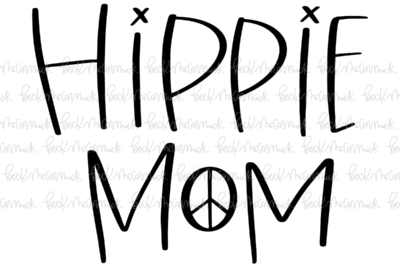 HiPPiE
MOM